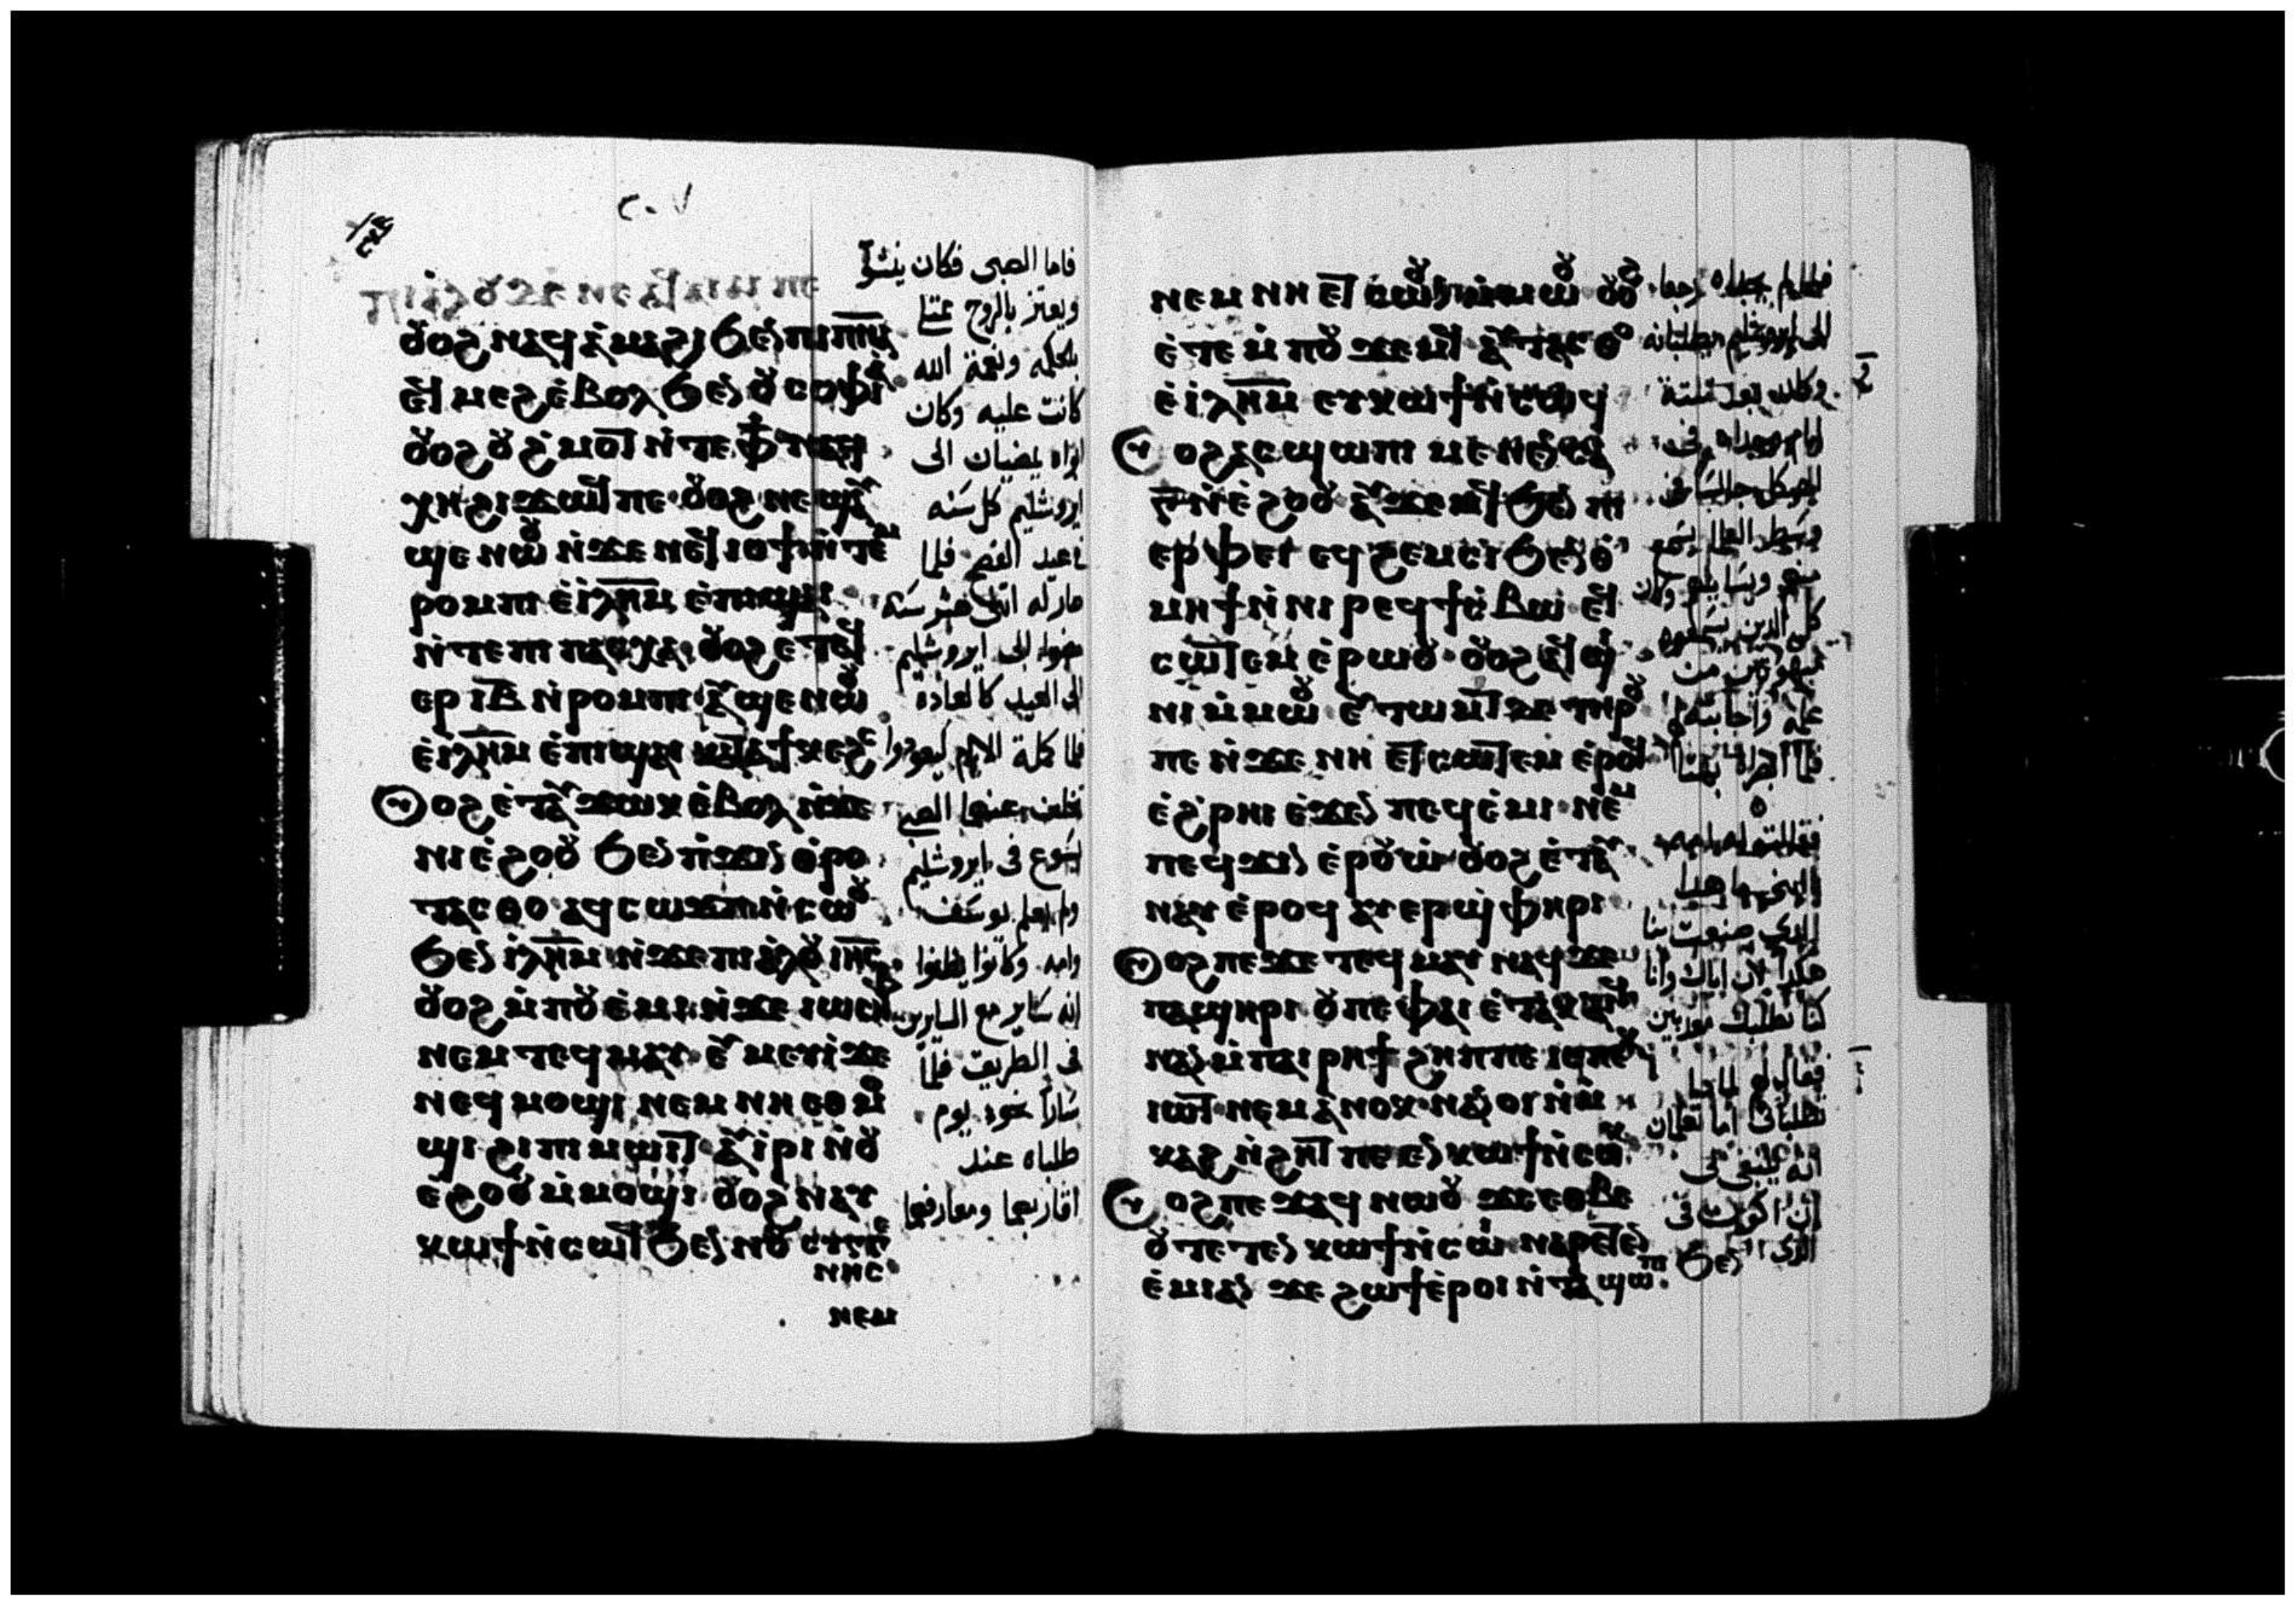 ٢٠٧
ⲟⲩⲟϩ ⲛⲁϥⲁ̀ⲙⲁϩⲓ ϧⲉⲛ ⲡⲓⲡ̅ⲛ̅ⲁ̅
ⲉϥⲙⲉϩ ⲉ̀ⲃⲟⲗ ϧⲉⲛ ⲟⲩⲥⲟⲫⲓⲁ
ⲟⲩⲟϩ ⲟⲩϩ̀ⲙⲟⲧ ⲛ̀ⲧⲉ ⲫϯ ⲛⲁϥ
ⲭⲏ ϩⲓϫⲱϥ ⲡⲉ· ⲟⲩⲟϩ ⲛⲉϣⲁⲩ
ϣⲉ ⲛⲱⲟⲩ ⲛ̀ϫⲉ ⲛⲉϥⲓⲟϯ ⲛ̀ⲧⲉⲙ
ⲣⲟⲙⲡⲓ ⲉ̀ⲓ̀ⲗ̅ⲏ̅ⲙ̅ ⲉ̀ⲡⲓϣⲁⲓ
ⲛ̀ⲧⲉ ⲡⲓⲡⲁⲥⲭⲁ· ⲟⲩⲟϩ ⲉⲧⲁϥ
ⲉⲣ ⲓ̅ⲃ̅ ⲛ̀ⲣⲟⲙⲡⲓ ⲁⲩϣⲉ ⲛⲱⲟⲩ
ⲉ̀ⲓ̀ⲗ̅ⲏ̅ⲙ̅ ⲉ̀ⲡⲓϣⲁⲓ ⲕⲁⲧⲁ ϯⲕⲉϩⲥ
ⲟⲩⲟϩ ⲉ̀ⲧⲁⲩϫⲱⲕ ⲉ̀ⲃⲟⲗ ⲛ̀ϫⲉ
ⲛⲓⲉ̀ϩⲟⲟⲩ ϧⲉⲛ ⲡ̀ϫⲓⲛⲑⲣⲟⲩ
ⲧⲁⲥⲑⲟ ⲁϥⲥⲱϫⲡ ⲛ̀ⲥⲱⲟⲩ
ϧⲉⲛ ⲓ̀ⲗ̅ⲏ̅ⲙ̅ ⲛ̀ϫⲉ ⲡⲓⲁ̀ⲗⲟⲩ ⲓⲏ̅ⲥ̅
ⲟⲩⲟϩ ⲙ̀ⲡⲟⲩⲉ̀ⲙⲓ ⲛ̀ϫⲉ ⲓⲱⲥⲏⲫ
ⲛⲉⲙ ⲧⲉϥⲙⲁⲩ· ⲉⲩⲙⲉⲩⲓ̀ ϫⲉ
ⲛⲉϥⲙⲟϣⲓ ⲛⲉⲙ ⲛⲏ ⲉⲑⲙⲟ
ϣⲓ ϩⲓ ⲡⲓⲙⲱⲓⲧ ⲁⲩⲓ̀ⲣⲓ ⲛ̀ⲟⲩ
ⲉ̀ϩⲟⲟⲩ ⲙ̀ⲙⲟϣⲓ ⲟⲩⲟϩ ⲛⲁⲩ
ⲕⲱϯ ⲛ̀ⲥⲱϥ ϧⲉⲛ ⲛⲟⲩⲥⲩⲅⲅⲉ
ⲛⲏⲥ
ⲛⲉⲙ
فاما الصبى فكان ينشوا
ويعتز بالروح ممتليا
بالحكمه ونعمة الله
كانت عليه وكان
ابواه يمضيان الى
ايروشليم كل سنه
فى عيد الفصح فلما
صار له اثنى عشر سنه
مضوا الى ايروشليم
الى العيد كالعادة
فلما كملة الايام ليعودوا
تخلف عنهما الصبى
ايسوع فى ايروشليم
ولم يعلم يوسف
وامه· وكانوا يظنوا
انه ساير مع السايرين
فى الطريق فلما
سارا نحو يوم
طلباه عند
اقاربهما ومعارفهما
ⲛⲉⲙ ⲛⲏ ⲉⲧⲥⲱⲟⲩⲛ ⲙ̀ⲙⲱⲟⲩ ⲟⲩⲟϩ
ⲉ̀ⲧⲉ ⲙ̀ⲡⲟⲩϫⲉⲙϥ ⲁⲩⲧⲁⲥⲑⲟ
ⲉ̀ⲓ̀ⲗ̅ⲏ̅ⲙ̅ ⲉⲩⲕⲱϯ ⲛ̀ⲥⲱϥ
ⲟⲩⲟϩ ⲁⲥϣⲱⲡⲓ ⲙⲉⲛⲉⲛⲥⲁ
ⲅ̅ ⲛ̀ⲉ̀ϩⲟⲟⲩ ⲁⲩϫⲉⲙϥ ϧⲉⲛ ⲡⲓ
ⲉⲣⲫⲉⲓ ⲉϥϩⲉⲙⲥⲓ ϧⲉⲛ ⲑ̀
ⲙⲏϯ ⲛ̀ⲛⲓⲣⲉϥϯⲥ̀ⲃⲱ ⲉϥ
ⲥⲱⲧⲉⲙ ⲉ̀ⲣⲱⲟⲩ· ⲟⲩⲟϩ ⲉϥϣⲓ
ⲛⲓ ⲙ̀ⲙⲱⲟⲩ ⲉⲩⲧⲱⲙⲧ ϫⲉ ⲧⲏⲣⲟⲩ
ⲡⲉ ⲛ̀ϫⲉ ⲛⲏ ⲉⲧⲥⲱⲧⲉⲙ ⲉ̀ⲣⲟϥ
ⲉ̀ϩ̀ⲣⲏⲓ ⲉ̀ϫⲉⲛ ⲡⲉϥⲉ̀ⲙⲓ· ⲛⲉⲙ
ⲡⲉϥϫⲓⲛⲉ̀ⲣⲟⲩⲱ̀· ⲟⲩⲟϩ ⲉ̀ⲧⲁⲩ
ⲛⲁⲩ ⲉ̀ⲣⲟϥ ⲁⲩⲉⲣϣ̀ⲫⲏⲣⲓ
ⲟⲩⲟϩ ⲡⲉϫⲉ ⲧⲉϥⲙⲁⲩ ⲛⲁϥ ϫⲉ
ⲡⲁϣⲏⲣⲓ ⲟⲩ ⲡⲉ ⲫⲁⲓ ⲉ̀ⲧⲁⲕⲁⲓϥ
ⲛⲁⲛ ⲙ̀ⲡⲁⲓⲣⲏϯ ϩⲏⲡⲡⲉ ⲓⲥ ⲡⲉⲕ
ⲓⲱⲧ ⲛⲉⲙ ⲁ̀ⲛⲟⲕ ⲛⲁⲛⲟⲓ ⲛ̀ⲙ̀
ⲕⲁϩ ⲛ̀ϩⲏⲧ ⲡⲉ ⲉⲛⲕⲱϯ ⲛ̀ⲥⲱⲕ
ⲟⲩⲟϩ ⲡⲉϫⲁϥ ⲛⲱⲟⲩ ϫⲉ ⲉⲑⲃⲉ
ⲟⲩ ⲧⲉⲧⲉⲛⲕⲱϯ ⲛ̀ⲥⲱⲓ ⲛⲁⲣⲉⲧⲉⲛ
ⲉ̀ⲙⲓ ⲁⲛ ϫⲉ ϩⲱϯ ⲉ̀ⲣⲟⲓ ⲛ̀ⲧⲁϣⲱⲡⲓ ϧⲉⲛ
فلما لم يجداه رجعا
الى ايروشليم يطلبانه
وكان بعد ثلثة
ايام وجداه فى
الهيكل جالسا فى
كل الذين يسمعوه
فقالت له امه
هكذا لان اباك وانا
كنا نطلبك موجعين
فقال لهما لما
تطلبانى اما تعلمان
انه ينبغى لى
ان اكون فى
الذى